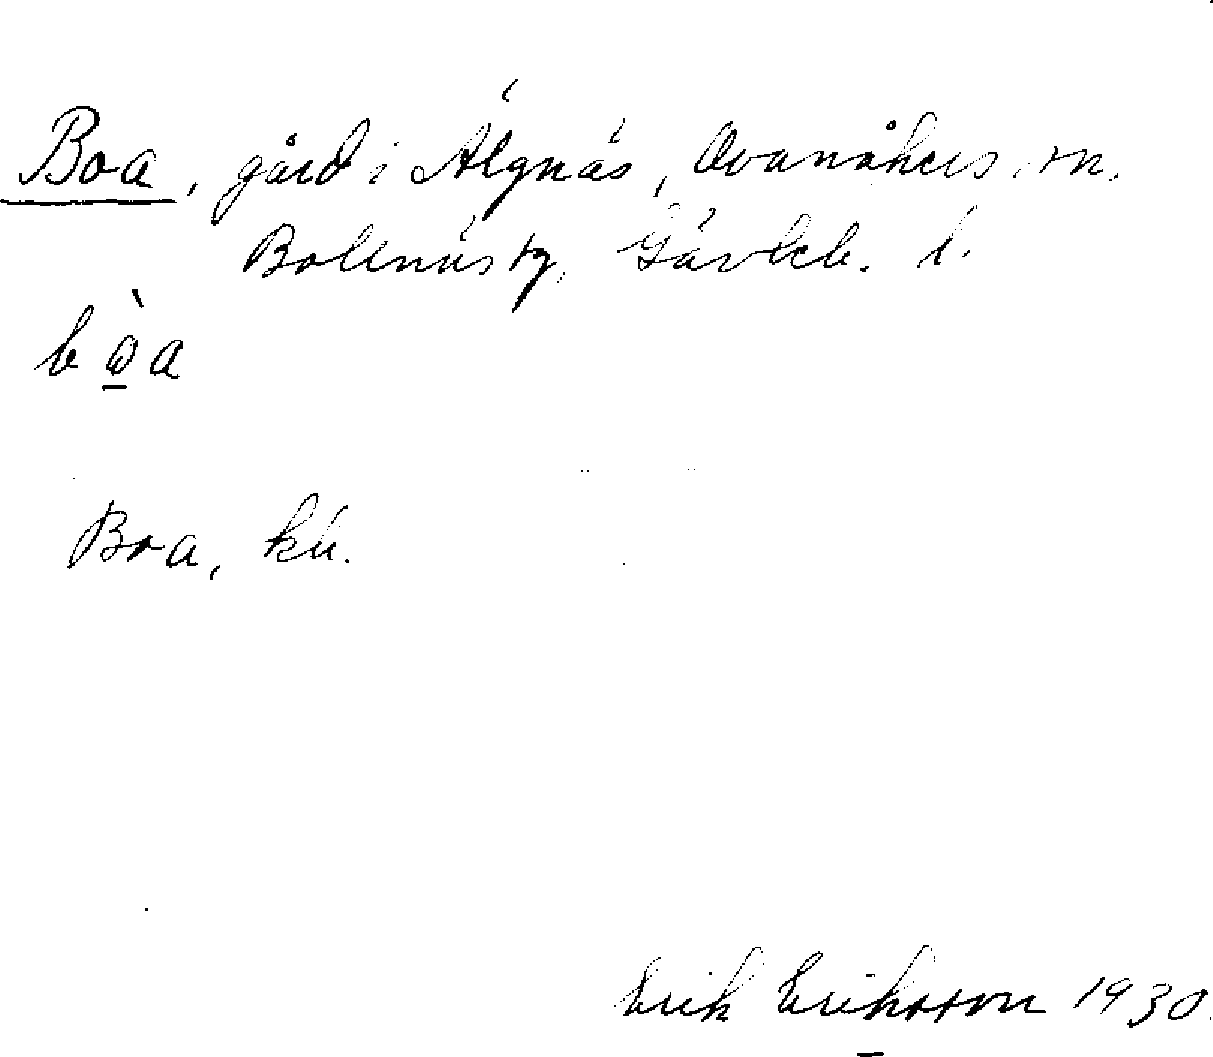 Boa, gård i Älgnäs, Ovanåkers sn.
Bollnäs tg, Gävleb. l.
bò̱a
Boa, ku.
Erik Eriksson 1930.